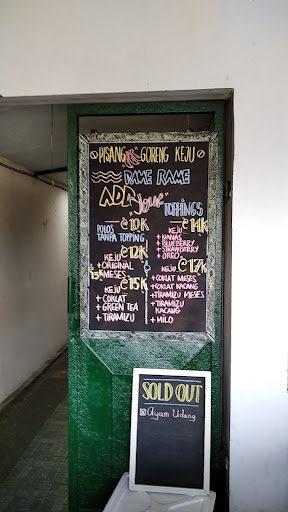 PISANG GORENG KEJU
RAME RAME
ADA
TOPPINGS
@ 10K
POLOS
TANPA TOPPING
@ 12K
KEJU
+ ORIGINAL
MESES
@ 15K
KEJU
+ COKLAT
+ GREEN TEA
+ TIRAMIZU
@ 14K
KEJU
+ NANAS
+ BLUEBERRY
+ STRAWBERRY
+ OREO
@ 17K
KEJU
+ COKLAT MESES
+ COKLAT KACANG
+ TIRAMIZU MESES
+ TIRAMIZU
KACANG
+ MILO
SOLD OUT
Ayam Udang